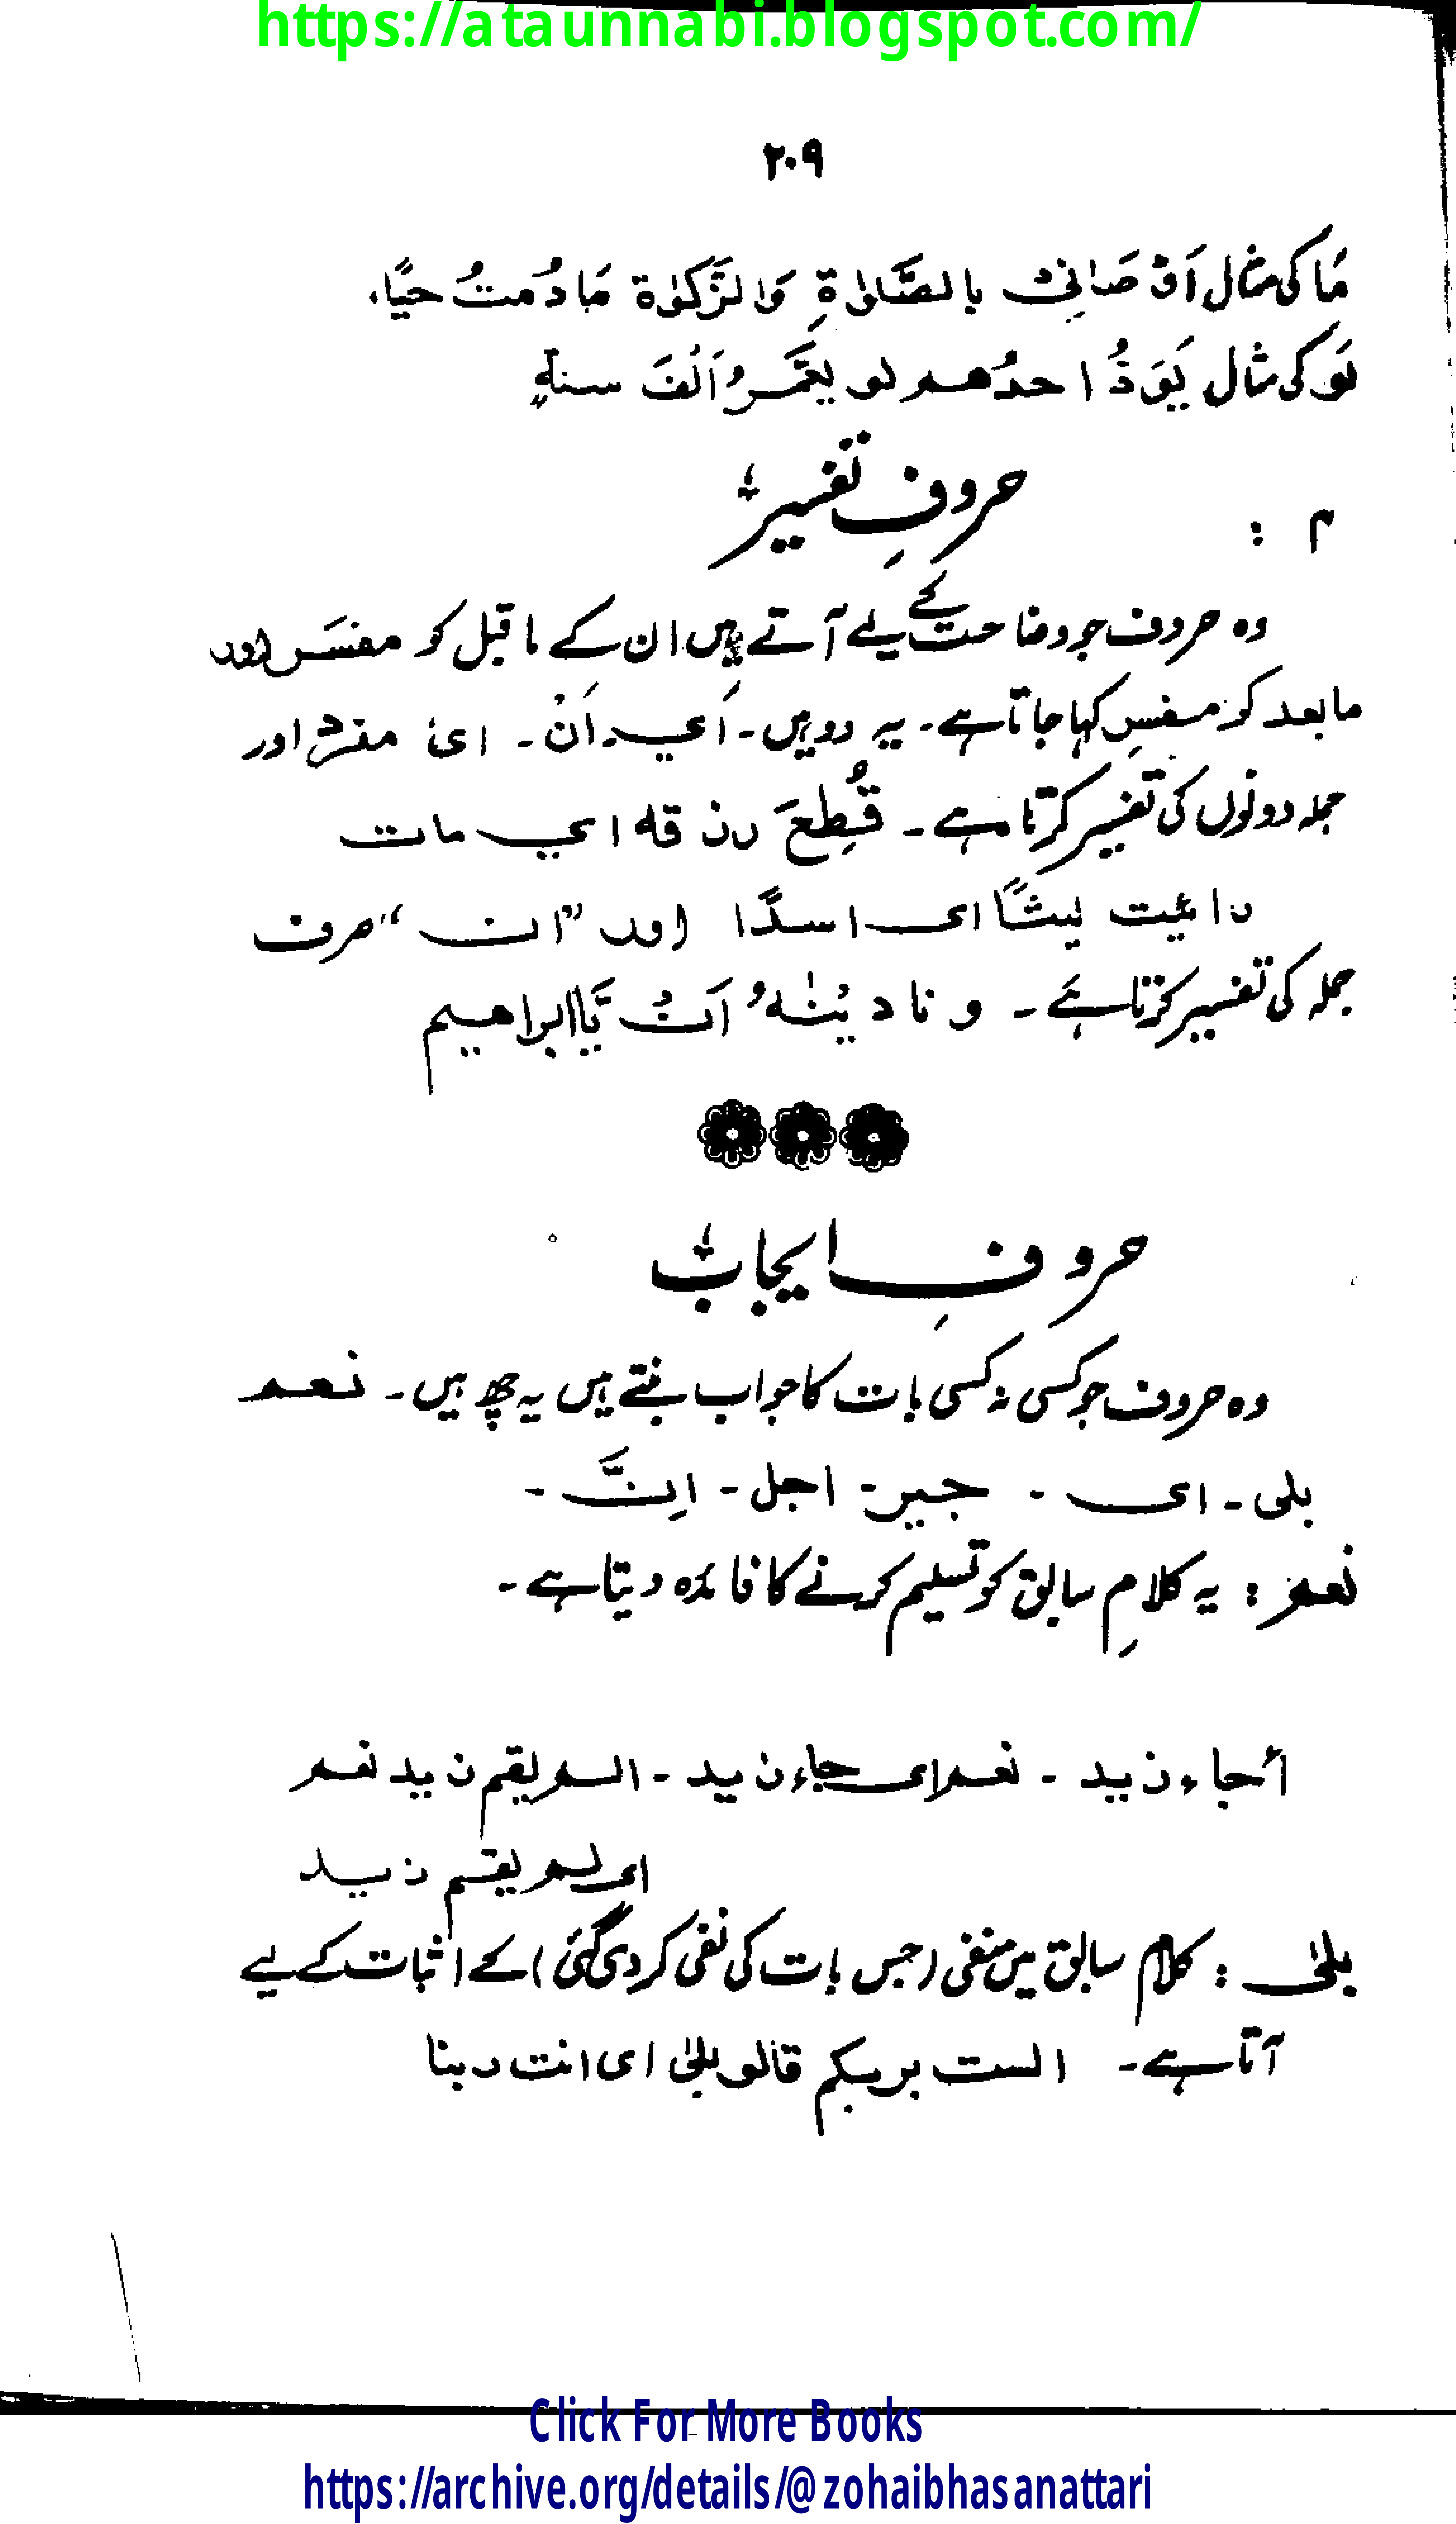 https://ataunnabi.blogspot.com/
۲۰۹
مَا کی مثال اَوْصَانِیْ بِالصَّلٰوۃِ وَالزَّکٰوۃ مَا دُمتُ حیًّا،
لَو کی مثال یَوَدُّ احدُھم لو یعَمَّرُ اَلْفَ سنۃٍ
حروفِ تفسیر؛
م :
وہ حروف جو وضاحت کے لیے آتے ہیں ان کے ماقبل کو مفسَر اور
مابعد کو مفسِر کہا جاتا ہے۔ یہ دو ہیں۔ اَی۔ اَنْ۔ ای مفرد اور
جملہ دونوں کی تفسیر کرتا ہے۔ قُطِعَ رزقہ ای مات
رائیت لیثًا ای اسدًا اور ”ان“ صرف
جملہ کی تفسیر کرتا ہے۔ و نادینٰہُ اَنْ یَّا ابراھیم
حروفِ ایجاب؛
وہ حروف جو کسی نہ کسی بات کا جواب بنتے ہیں یہ چھ ہیں۔ نعم
بلی۔ ای ۔ جیر۔ اجل۔ اِنَّ ۔
نعم : یہ کلامِ سابق کو تسلیم کرنے کا فائدہ دیتا ہے۔
أجاء زید ۔ نعم ای جاء زید ۔ الم یقم زید نعم
ای لم یقم زید
بلیٰ : کلام سابق میں منفی (جس بات کی نفی کر دی گئی) کے اثبات کے لیے
آتا ہے۔ الست بربکم قالو بلیٰ ای انت ربنا
Click For More Books
https://archive.org/details/@zohaibhasanattari